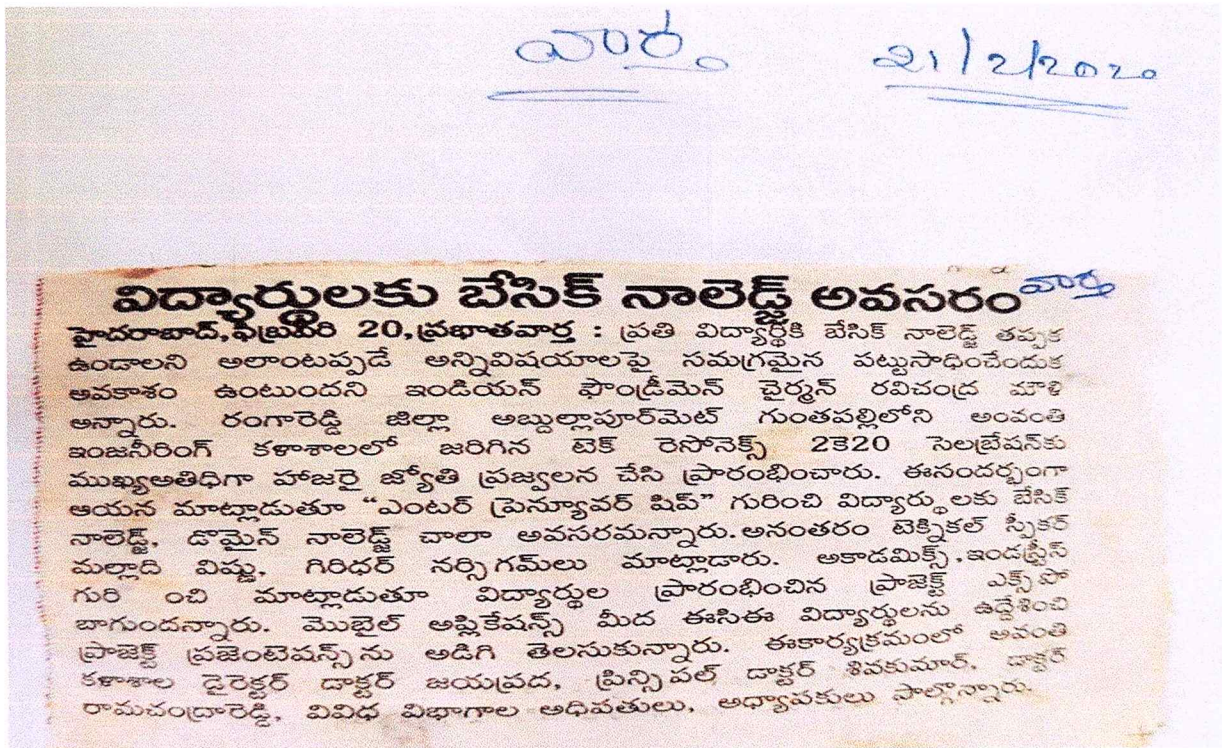 వార్త 21/2/2020
విద్యార్థులకు బేసిక్ నాలెడ్జ్ అవసరం వార్త
హైదరాబాద్,ఫిబ్రవరి 20,ప్రభాతవార్త : ప్రతి విద్యార్థికి బేసిక్ నాలెడ్జ్ తప్పక
ఉండాలని అలాంటప్పడే అన్నివిషయాలపై సమగ్రమైన పట్టుసాధించేందుక
అవకాశం ఉంటుందని ఇండియన్ ఫౌండ్రీమెన్ చైర్మన్ రవిచంద్ర మౌళి
అన్నారు. రంగారెడ్డి జిల్లా అబ్దుల్లాపూర్‌మెట్ గుంతపల్లిలోని అంవంతి
ఇంజనీరింగ్ కళాశాలలో జరిగిన టెక్ రెసోనెక్స్ 2కె20 సెలబ్రేషన్‌కు
ముఖ్యఅతిధిగా హాజరై జ్యోతి ప్రజ్వలన చేసి ప్రారంభించారు. ఈసందర్భంగా
ఆయన మాట్లాడుతూ "ఎంటర్ ప్రెన్యూవర్ షిప్" గురించి విద్యార్థులకు బేసిక్
నాలెడ్జ్, డొమైన్ నాలెడ్జ్ చాలా అవసరమన్నారు.అనంతరం టెక్నికల్ స్పీకర్
మల్లాది విష్ణు, గిరిధర్ నర్సిగమ్‌లు మాట్లాడారు. అకాడమిక్స్,ఇండస్ట్రీస్
గురి ంచి మాట్లాడుతూ విద్యార్థుల ప్రారంభించిన ప్రాజెక్ట్ ఎక్స్‌పో
బాగుందన్నారు. మొబైల్ అప్లికేషన్స్ మీద ఈసిఈ విద్యార్థులను ఉద్దేశించి
ప్రాజెక్ట్ ప్రజెంటెషన్స్‌ను అడిగి తెలసుకున్నారు. ఈకార్యక్రమంలో అవంతి
కళాశాల డైరెక్టర్ డాక్టర్ జయప్రద, ప్రిన్సిపల్ డాక్టర్ శివకుమార్, డాక్టర్
రామచంద్రారెడ్డి, వివిధ విభాగాల అధిపతులు, అధ్యాపకులు పాల్గొన్నారు.